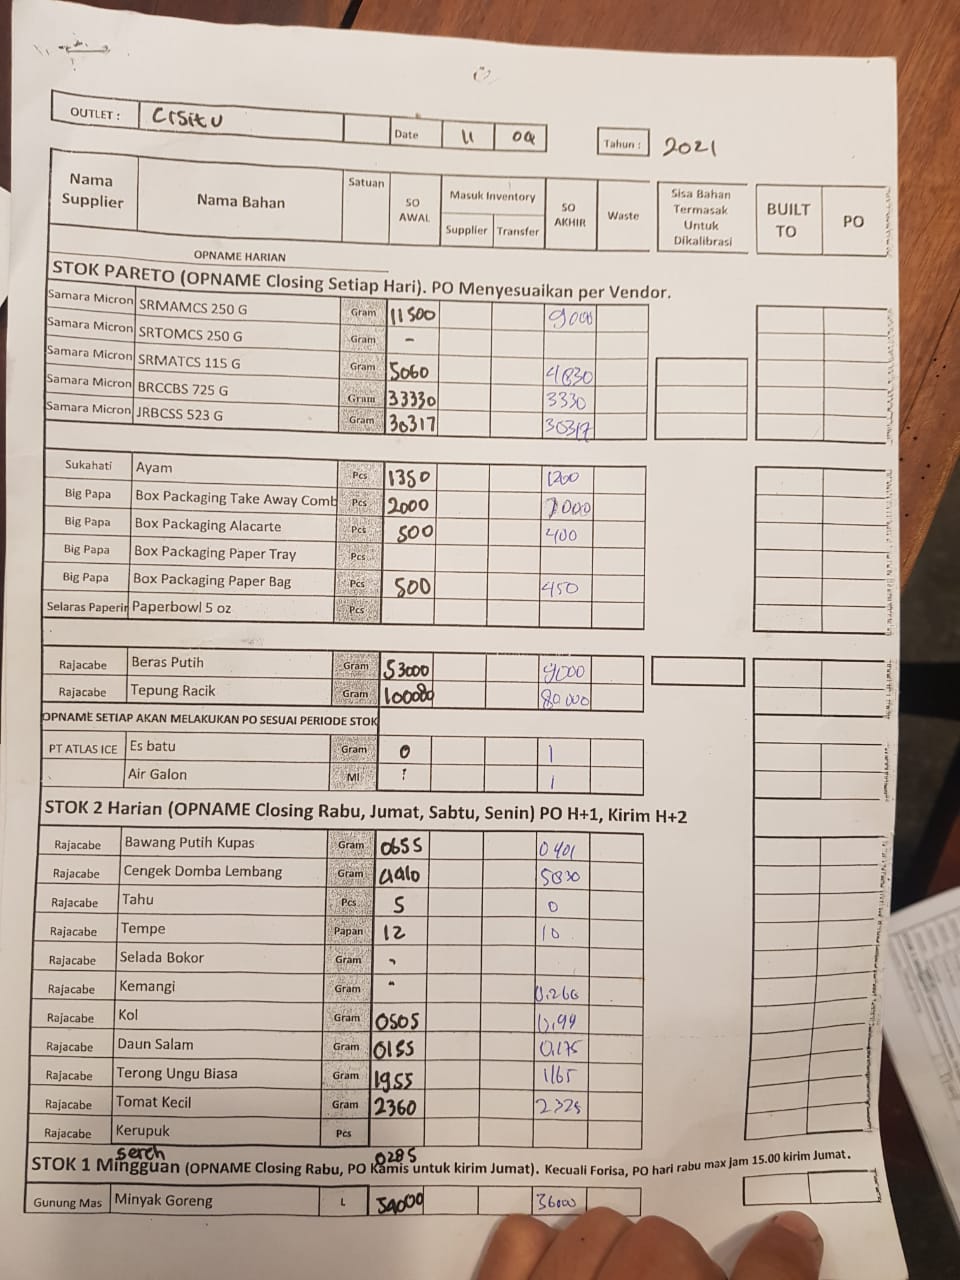 OUTLET : Cisitu Date 11 09 Tahun : 2021
Nama Supplier Nama Bahan Satuan SO AWAL Masuk Inventory Supplier Transfer SO AKHIR Waste Sisa Bahan Termasak Untuk Dikalibrasi BUILT TO PO
OPNAME HARIAN
STOK PARETO (OPNAME Closing Setiap Hari). PO Menyesuaikan per Vendor.
Samara Micron SRMAMCS 250 G Gram 11500 9000
Samara Micron SRTOMCS 250 G Gram -
Samara Micron SRMATCS 115 G Gram 5060 4830
Samara Micron BRCCBS 725 G Gram 33330 3330
Samara Micron JRBCSS 523 G Gram 30317 30317
Sukahati Ayam Pcs 1350 1200
Big Papa Box Packaging Take Away Comb Pcs 2000
Big Papa Box Packaging Alacarte Pcs 500 400
Big Papa Box Packaging Paper Tray Pcs
Big Papa Box Packaging Paper Bag Pcs 500 450
Selaras Paperin Paperbowl 5 oz Pcs
Rajacabe Beras Putih Gram 53000 9000
Rajacabe Tepung Racik Gram 80000
OPNAME SETIAP AKAN MELAKUKAN PO SESUAI PERIODE STOK
PT ATLAS ICE Es batu Gram 0 1
Air Galon Ml 1
STOK 2 Harian (OPNAME Closing Rabu, Jumat, Sabtu, Senin) PO H+1, Kirim H+2
Rajacabe Bawang Putih Kupas Gram 0655 0401
Rajacabe Cengek Domba Lembang Gram
Rajacabe Tahu Pcs 5 0
Rajacabe Tempe Papan 12 10
Rajacabe Selada Bokor Gram
Rajacabe Kemangi Gram - 0.266
Rajacabe Kol Gram 0505
Rajacabe Daun Salam Gram 0155 0.175
Rajacabe Terong Ungu Biasa Gram 1955 1165
Rajacabe Tomat Kecil Gram 2360 2325
Rajacabe Kerupuk Pcs
Sereh 0285
STOK 1 Mingguan (OPNAME Closing Rabu, PO Kamis untuk kirim Jumat). Kecuali Forisa, PO hari rabu max jam 15.00 kirim Jumat.
Gunung Mas Minyak Goreng L 36000